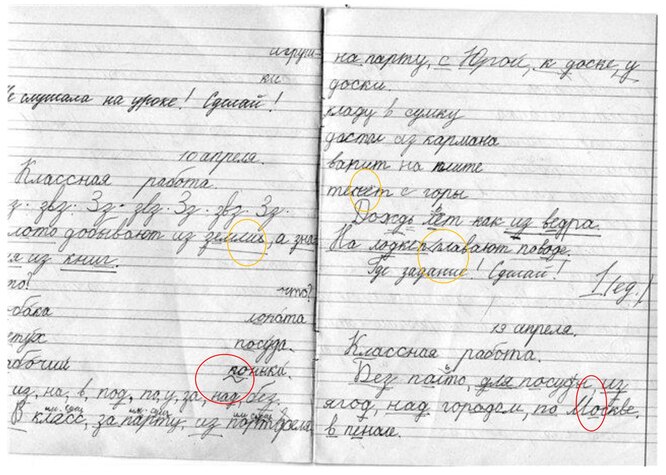 игруш-
ки
Не слушала на уроке! Сделай!
10 апреля.
Классная работа.
з. звз. Зз. звз. Зз. звз. Зз.
лото добывают из земли, а зна-
ия из книг.
то! что?
обка лопата
етух посуда.
абочий коньки.
из, на, в, под, по, у, за, над, без.
В класс, за парту, из портфеля
на парту, с Юрой, к доске, у
доски.
кладу в сумку
достал из кармана
варит на плите
течёт с горы
Дождь льёт как из ведра.
На лодке плавают по воде.
Где задание! Сделай!
1 (ед.)
13 апреля.
Классная работа.
Без пальто, для посуды, из
ягод, над городом, по Москве.
в пенале.